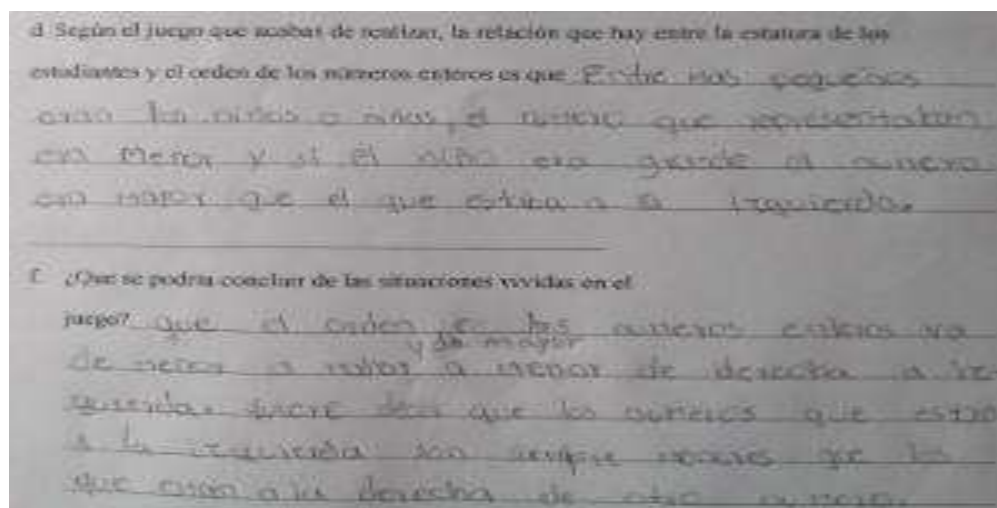 d. Según el juego que acabas de realizar, la relación que hay entre la estatura de los
estudiantes y el orden de los números enteros es que Entre mas pequeños
eran los niños o niñas, el numero que representaban
era Menor y si el niño era grande el numero
era mayor que el que estaba a la izquierda.
f. ¿Que se podria concluir de las situaciones vividas en el
juego? que el orden de los numeros enteros va
y de mayor
de menor a mayor a menor de derecha a iz
quierda. quiere decir que los numeros que estan
a la izquierda son siempre menores que los
que estan a la derecha de otro numero.